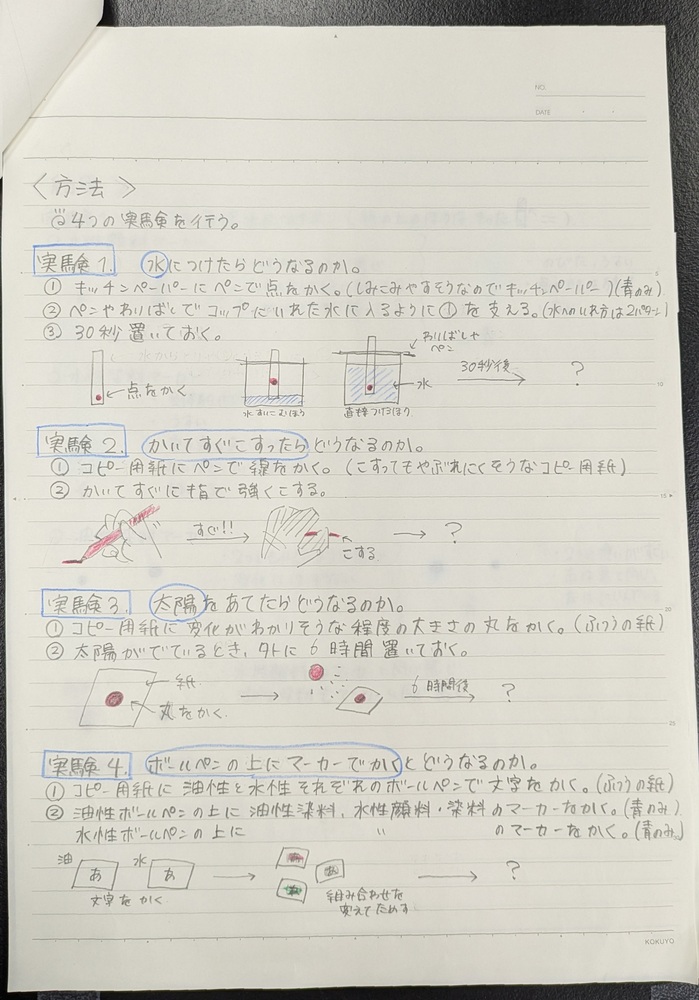 NO.
DATE
〈方法〉
4つの実験を行う。
実験1. 水につけたらどうなるのか。
① キッチンペーパーにペンで点をかく。(しみこみやすそうなのでキッチンペーパー)(青のみ)
② ペンやわりばしでコップにいれた水に入るように①を支える。(水へのいれ方は2パターン)
③ 30秒置いておく。
わりばしや
ペン
点をかく
水すいこむほう
直接つけるほう
水
30秒後
?
実験2. かいてすぐこすったらどうなるのか。
① コピー用紙にペンで線をかく。(こすってもやぶれにくそうなコピー用紙)
② かいてすぐに指で強くこする。
すぐ!!
こする
?
実験3. 太陽をあてたらどうなるのか。
① コピー用紙に変化がわかりそうな程度の大きさの丸をかく。(ふつうの紙)
② 太陽がでているとき、外に6時間置いておく。
紙
丸をかく
6時間後
?
実験4. ボールペンの上にマーカーでかくとどうなるのか。
① コピー用紙に油性と水性それぞれのボールペンで文字をかく。(ふつうの紙)
② 油性ボールペンの上に油性染料、水性顔料・染料のマーカーをかく。(青のみ)
水性ボールペンの上に 〃 のマーカーをかく。(青のみ)
油 あ 水 あ
文字をかく
あ あ あ
組み合わせを
変えてためす
?
KOKUYO